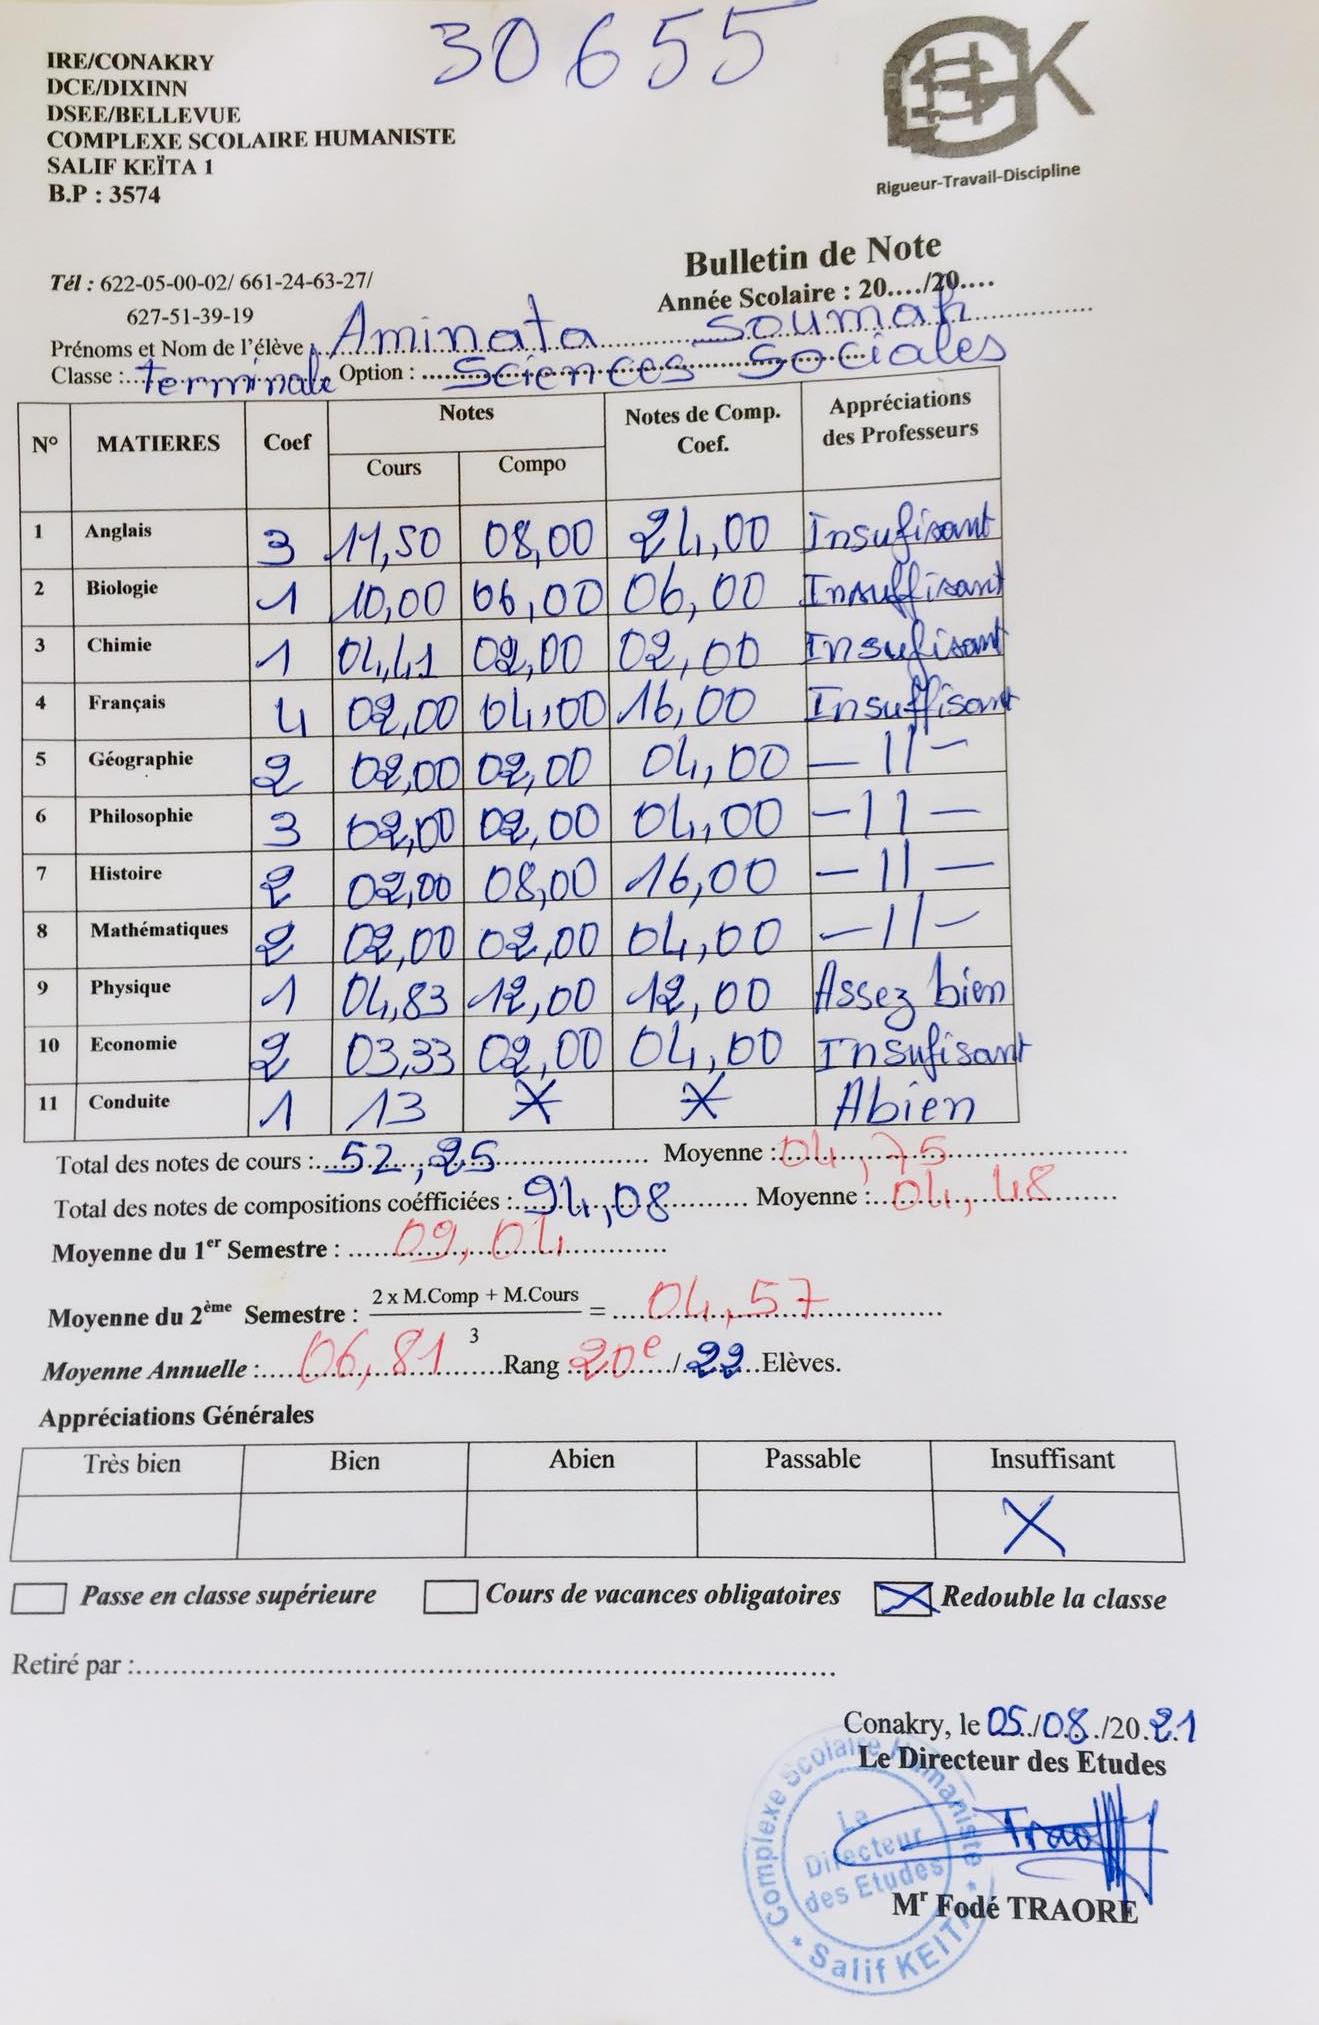 30655
IRE/CONAKRY
DCE/DIXINN
DSEE/BELLEVUE
COMPLEXE SCOLAIRE HUMANISTE
SALIF KEÏTA 1
B.P : 3574
K
Rigueur-Travail-Discipline
Bulletin de Note
Année Scolaire : 20..../20....
Tél : 622-05-00-02/ 661-24-63-27/
627-51-39-19
Prénoms et Nom de l'élève : Aminata Soumah
Classe : Terminale Option : Sciences Sociales
N° MATIERES Coef Notes Notes de Comp. Coef. Appréciations des Professeurs
Cours Compo
1 Anglais 3 11,50 08,00 24,00 Insufisant
2 Biologie 1 10,00 06,00 06,00 Insuffisant
3 Chimie 1 04,41 02,00 02,00 Insufisant
4 Français 4 02,00 04,00 16,00 Insuffisant
5 Géographie 2 02,00 02,00 04,00 — 11 —
6 Philosophie 3 02,00 02,00 04,00 — 11 —
7 Histoire 2 02,00 08,00 16,00 — 11 —
8 Mathématiques 2 02,00 02,00 04,00 — 11 —
9 Physique 1 04,83 12,00 12,00 Assez bien
10 Economie 2 03,33 02,00 04,00 Insufisant
11 Conduite 1 13 * * Abien
Total des notes de cours : 52,25 Moyenne : 04,75
Total des notes de compositions coéfficiées : 94,08 Moyenne : 04,48
Moyenne du 1er Semestre : 09,04
Moyenne du 2ème Semestre : 2 x M.Comp + M.Cours / 3 = 04,57
Moyenne Annuelle : 06,81 Rang 20e / 22 Elèves.
Appréciations Générales
Très bien Bien Abien Passable Insuffisant
X
Passe en classe supérieure Cours de vacances obligatoires X Redouble la classe
Retiré par :
Conakry, le 05/08/2021
Le Directeur des Etudes
Complexe Scolaire Humaniste * Salif KEITA *
Le Directeur des Etudes
Traoré
Mr Fodé TRAORE